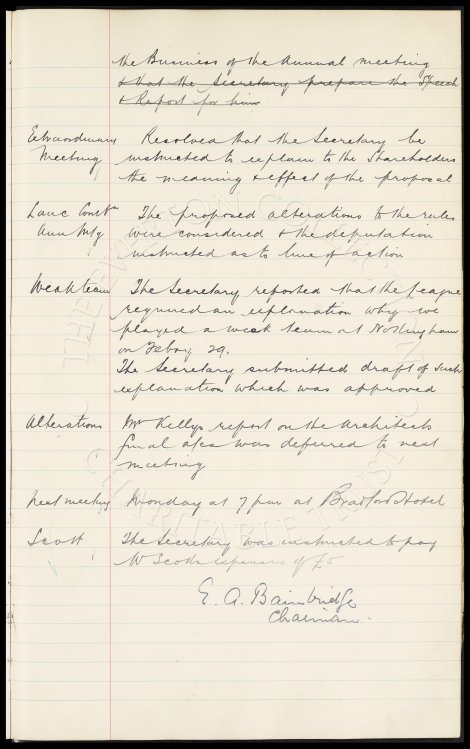 the Business of the Annual meeting
& that the Secretary prepare the Speech
& Report for him
Extraordinary Meeting
Resolved that the Secretary be
instructed to explain to the Shareholders
the meaning & effect of the proposal
Lanc
Ann Mtg
The proposed alterations to the rules
were considered & the deputation
instructed as to line of action
Weak team
The Secretary reported that the League
required an explanation why we
played a weak team at Nottingham
on Feby 29.
The Secretary submitted draft of such
explanation which was approved
Alterations
Mr Kellys report on the Architects
final a/cs was deferred to next
meeting
Next meeting
Monday at 7 pm at Bradford Hotel
Scott
The Secretary was instructed to pay
W Scotts expenses of £5
E. A. Bainbridge
Chairman.
THE EVERTON COLLECTION
CHARITABLE TRUST